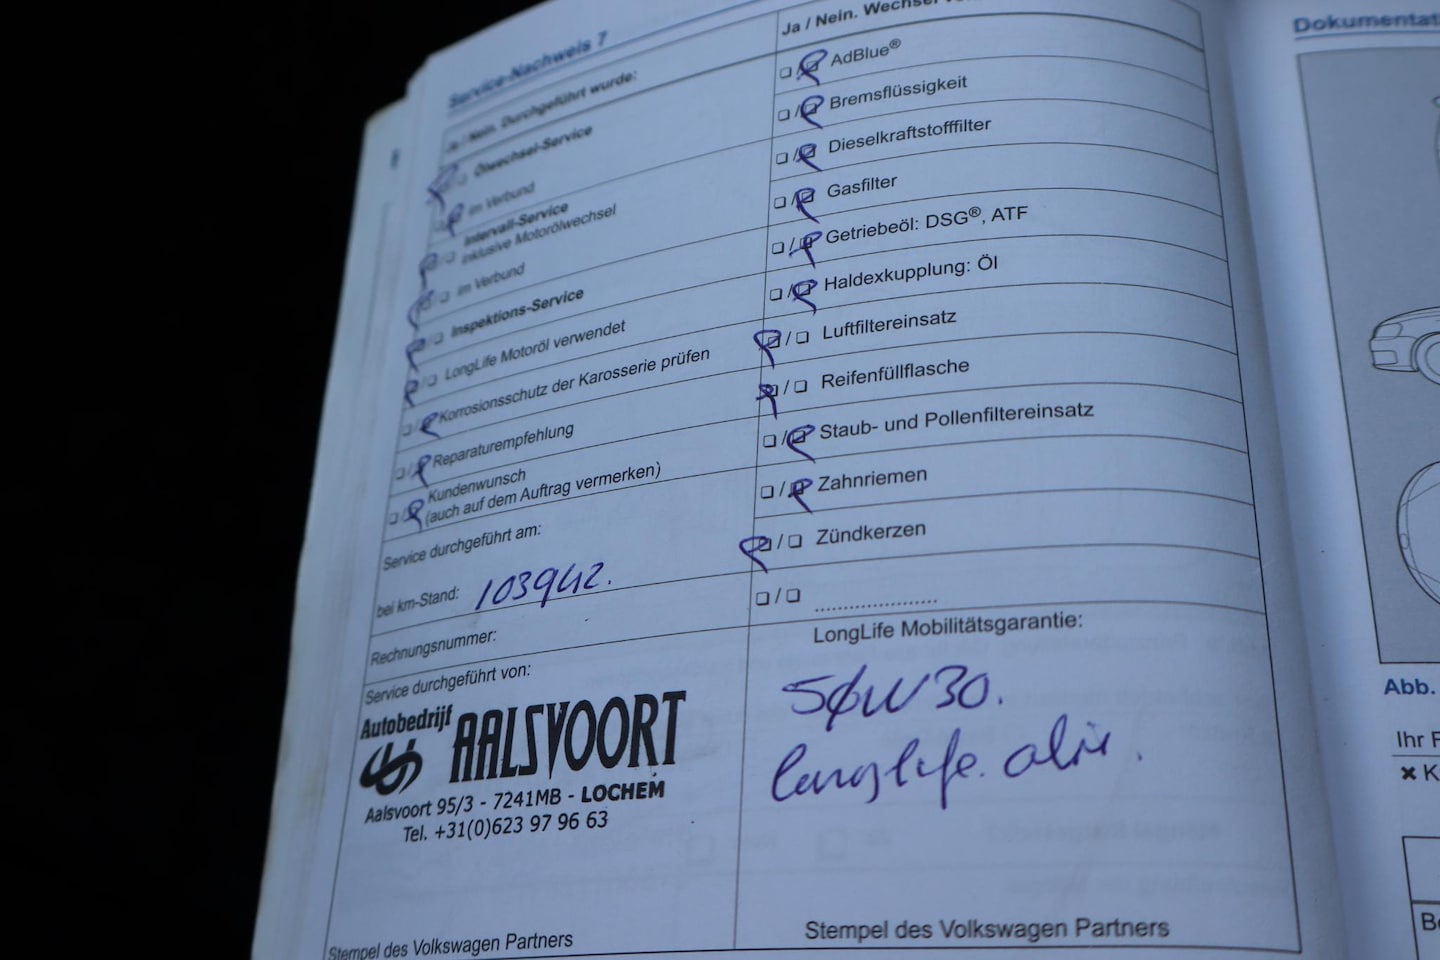 Service-Nachweis 7
Ja / Nein. Durchgeführt wurde:
Ölwechsel-Service
im Verbund
Intervall-Service
inklusive Motorölwechsel
im Verbund
Inspektions-Service
LongLife Motoröl verwendet
Korrosionsschutz der Karosserie prüfen
Reparaturempfehlung
Kundenwunsch
(auch auf dem Auftrag vermerken)
Service durchgeführt am:
bei km-Stand: 103942.
Rechnungsnummer:
Service durchgeführt von:
Autobedrijf
AALSVOORT
Aalsvoort 95/3 - 7241MB - LOCHEM
Tel. +31(0)623 97 96 63
Stempel des Volkswagen Partners
Ja / Nein. Wechsel
AdBlue®
Bremsflüssigkeit
Dieselkraftstofffilter
Gasfilter
Getriebeöl: DSG®, ATF
Haldexkupplung: Öl
Luftfiltereinsatz
Reifenfüllflasche
Staub- und Pollenfiltereinsatz
Zahnriemen
Zündkerzen
....................
LongLife Mobilitätsgarantie:
5ØW30.
longlife.
Stempel des Volkswagen Partners
Abb.
Ihr